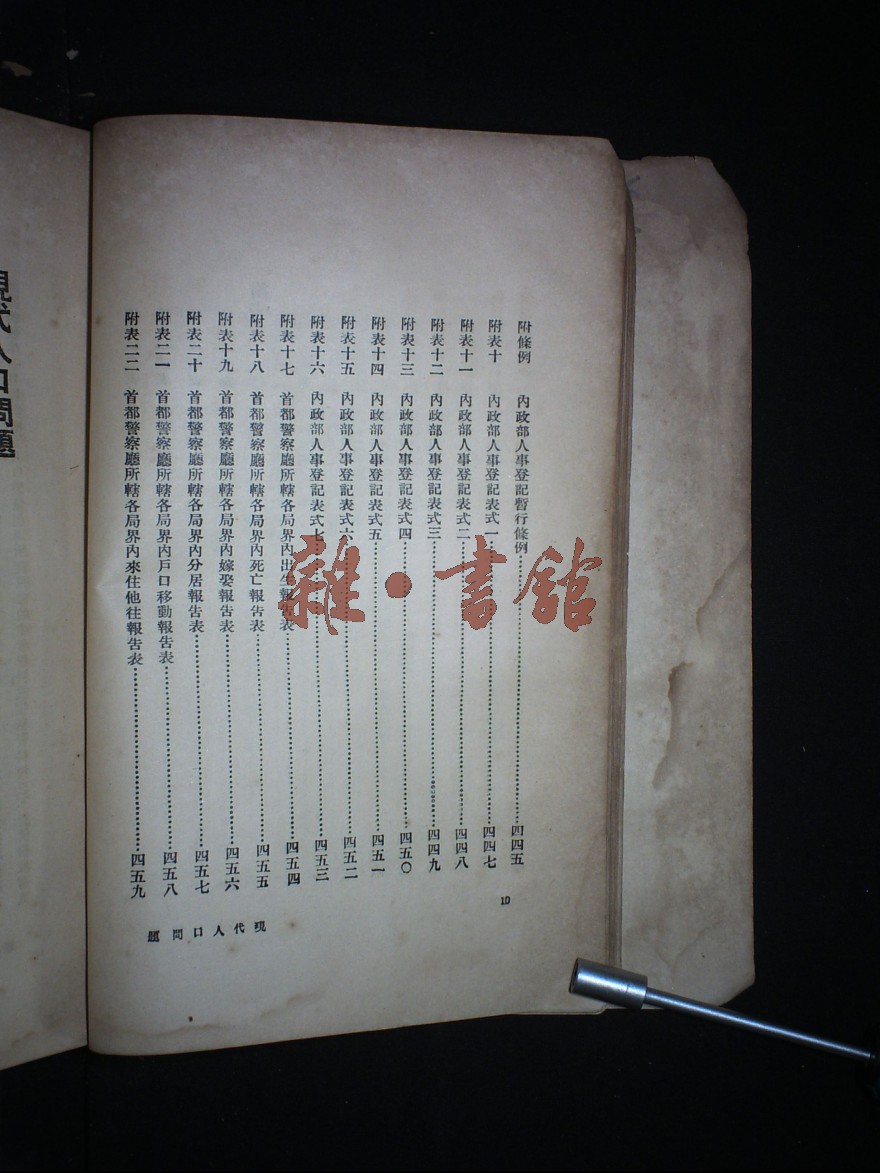 附條例 內政部人事登記暫行條例 四四五
附表十 內政部人事登記表式一 四四七
附表十一 內政部人事登記表式二 四四八
附表十二 內政部人事登記表式三 四四九
附表十三 內政部人事登記表式四 四五〇
附表十四 內政部人事登記表式五 四五一
附表十五 內政部人事登記表式六 四五二
附表十六 內政部人事登記表式七 四五三
附表十七 首都警察廳所轄各局界內出生報告表 四五四
附表十八 首都警察廳所轄各局界內死亡報告表 四五五
附表十九 首都警察廳所轄各局界內嫁娶報告表 四五六
附表二十 首都警察廳所轄各局界內分居報告表 四五七
附表二一 首都警察廳所轄各局界內戶口移動報告表 四五八
附表二二 首都警察廳所轄各局界內來住他往報告表 四五九
10
現代人口問題
現代人口問題
雜·書館